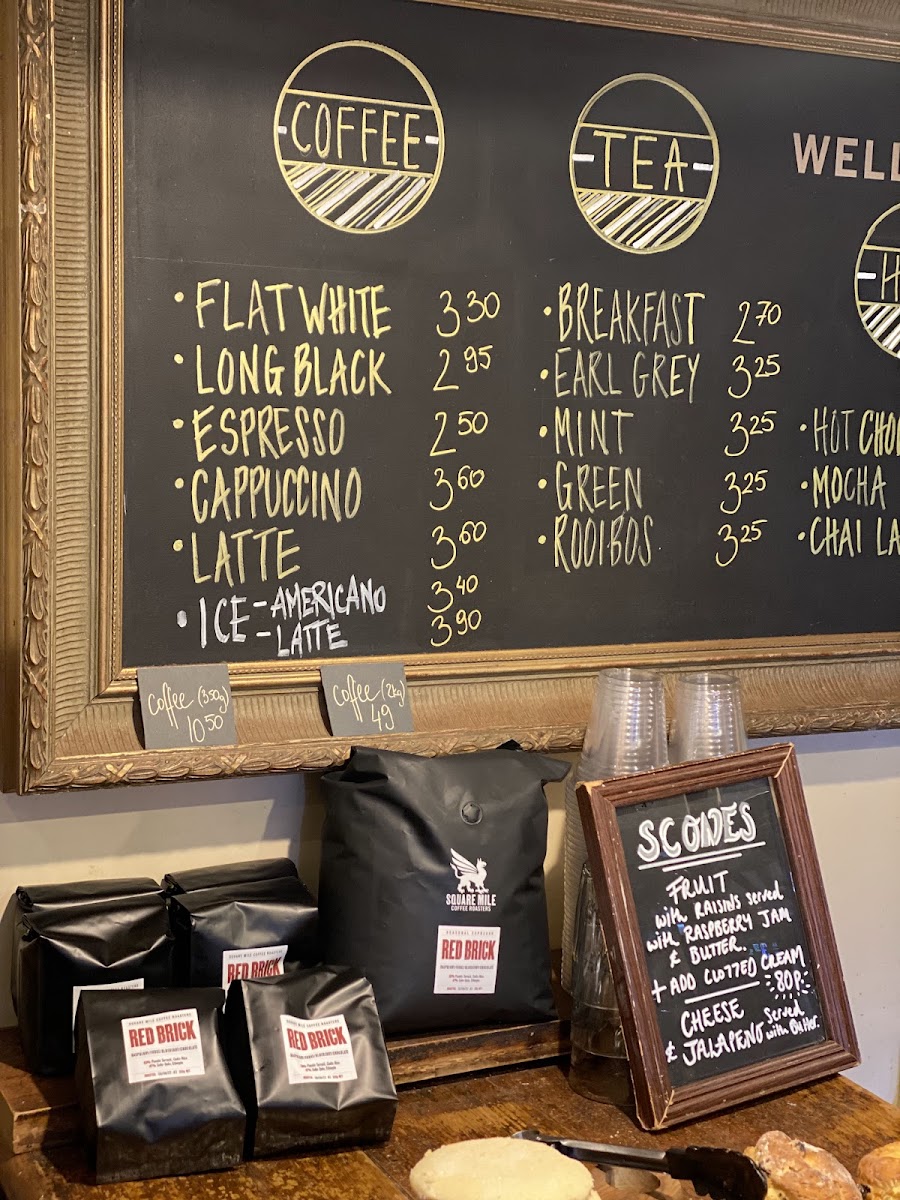 COFFEE
• FLAT WHITE 3.30
• LONG BLACK 2.95
• ESPRESSO 2.50
• CAPPUCCINO 3.60
• LATTE 3.60
• ICE - AMERICANO 3.40
- LATTE 3.90
TEA
• BREAKFAST 2.70
• EARL GREY 3.25
• MINT 3.25
• GREEN 3.25
• ROOIBOS 3.25
WELL
H
• HOT CHO
• MOCHA
• CHAI LA
Coffee (350g)
10.50
Coffee (2kg)
49
SQUARE MILE
COFFEE ROASTERS
SEASONAL ESPRESSO
RED BRICK
RED BRICK
SQUARE MILE COFFEE ROASTERS
RED BRICK
SQUARE MILE COFFEE ROASTERS
RED BRICK
SCONES
FRUIT
with RAISINS served
with RASPBERRY JAM
& BUTTER.
+ ADD CLOTTED CREAM
80P
CHEESE
& JALAPENO served
with Butter.